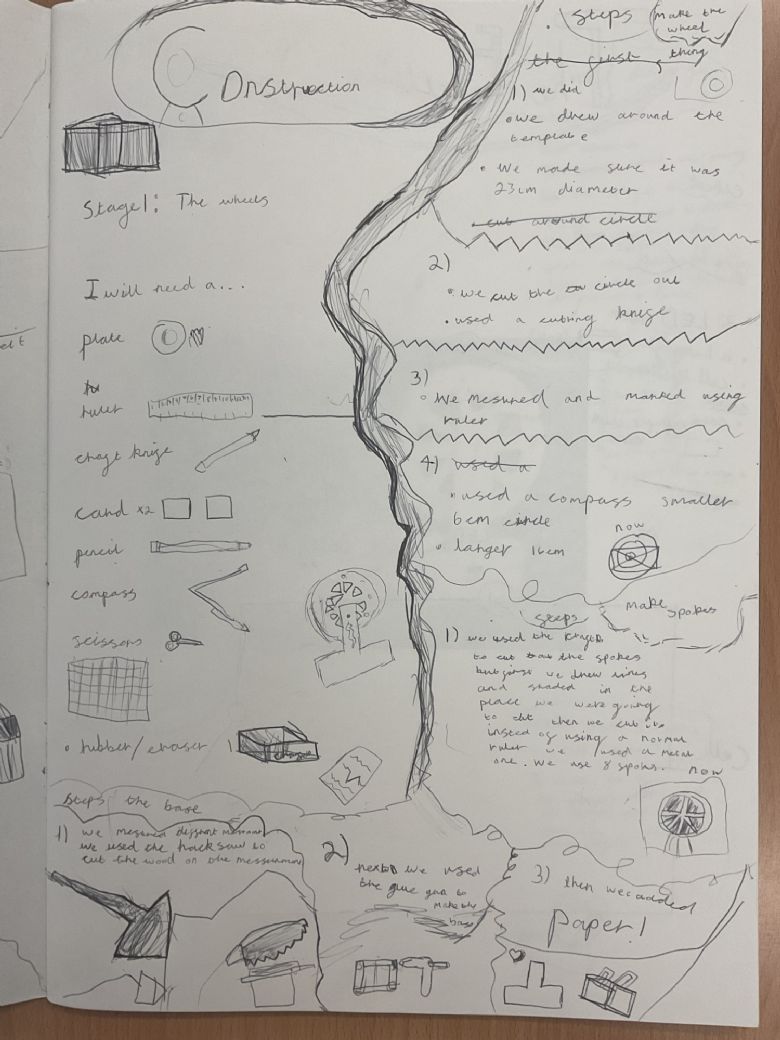 Construction
Stage 1: The wheels
I will need a...
plate
ruler
craft knife
card x2
pencil
compass
scissors
• rubber/eraser
eraser
• steps
make the
wheel
thing
the first,
1) we did
• we drew around the
template
• We made sure it was
23cm diameter
cut around circle
2)
• we cut the circle out
• used a cutting knife
3)
• We mesured and marked using
ruler
4) used a
• used a compass smaller
6cm circle
• larger 16cm
now
steps
make spokes
1) we used the
to cut the spokes
but first we drew lines
and shaded in the
place we were going
to cut then we cut it
insted of using a normal
ruler we used a metal
one. We use 8 spokes.
now
steps the base
1) we mesured
we used the hack saw to
cut the wood on the
2)
next we used
the glue gun to
make the
base
3) then we added
paper!